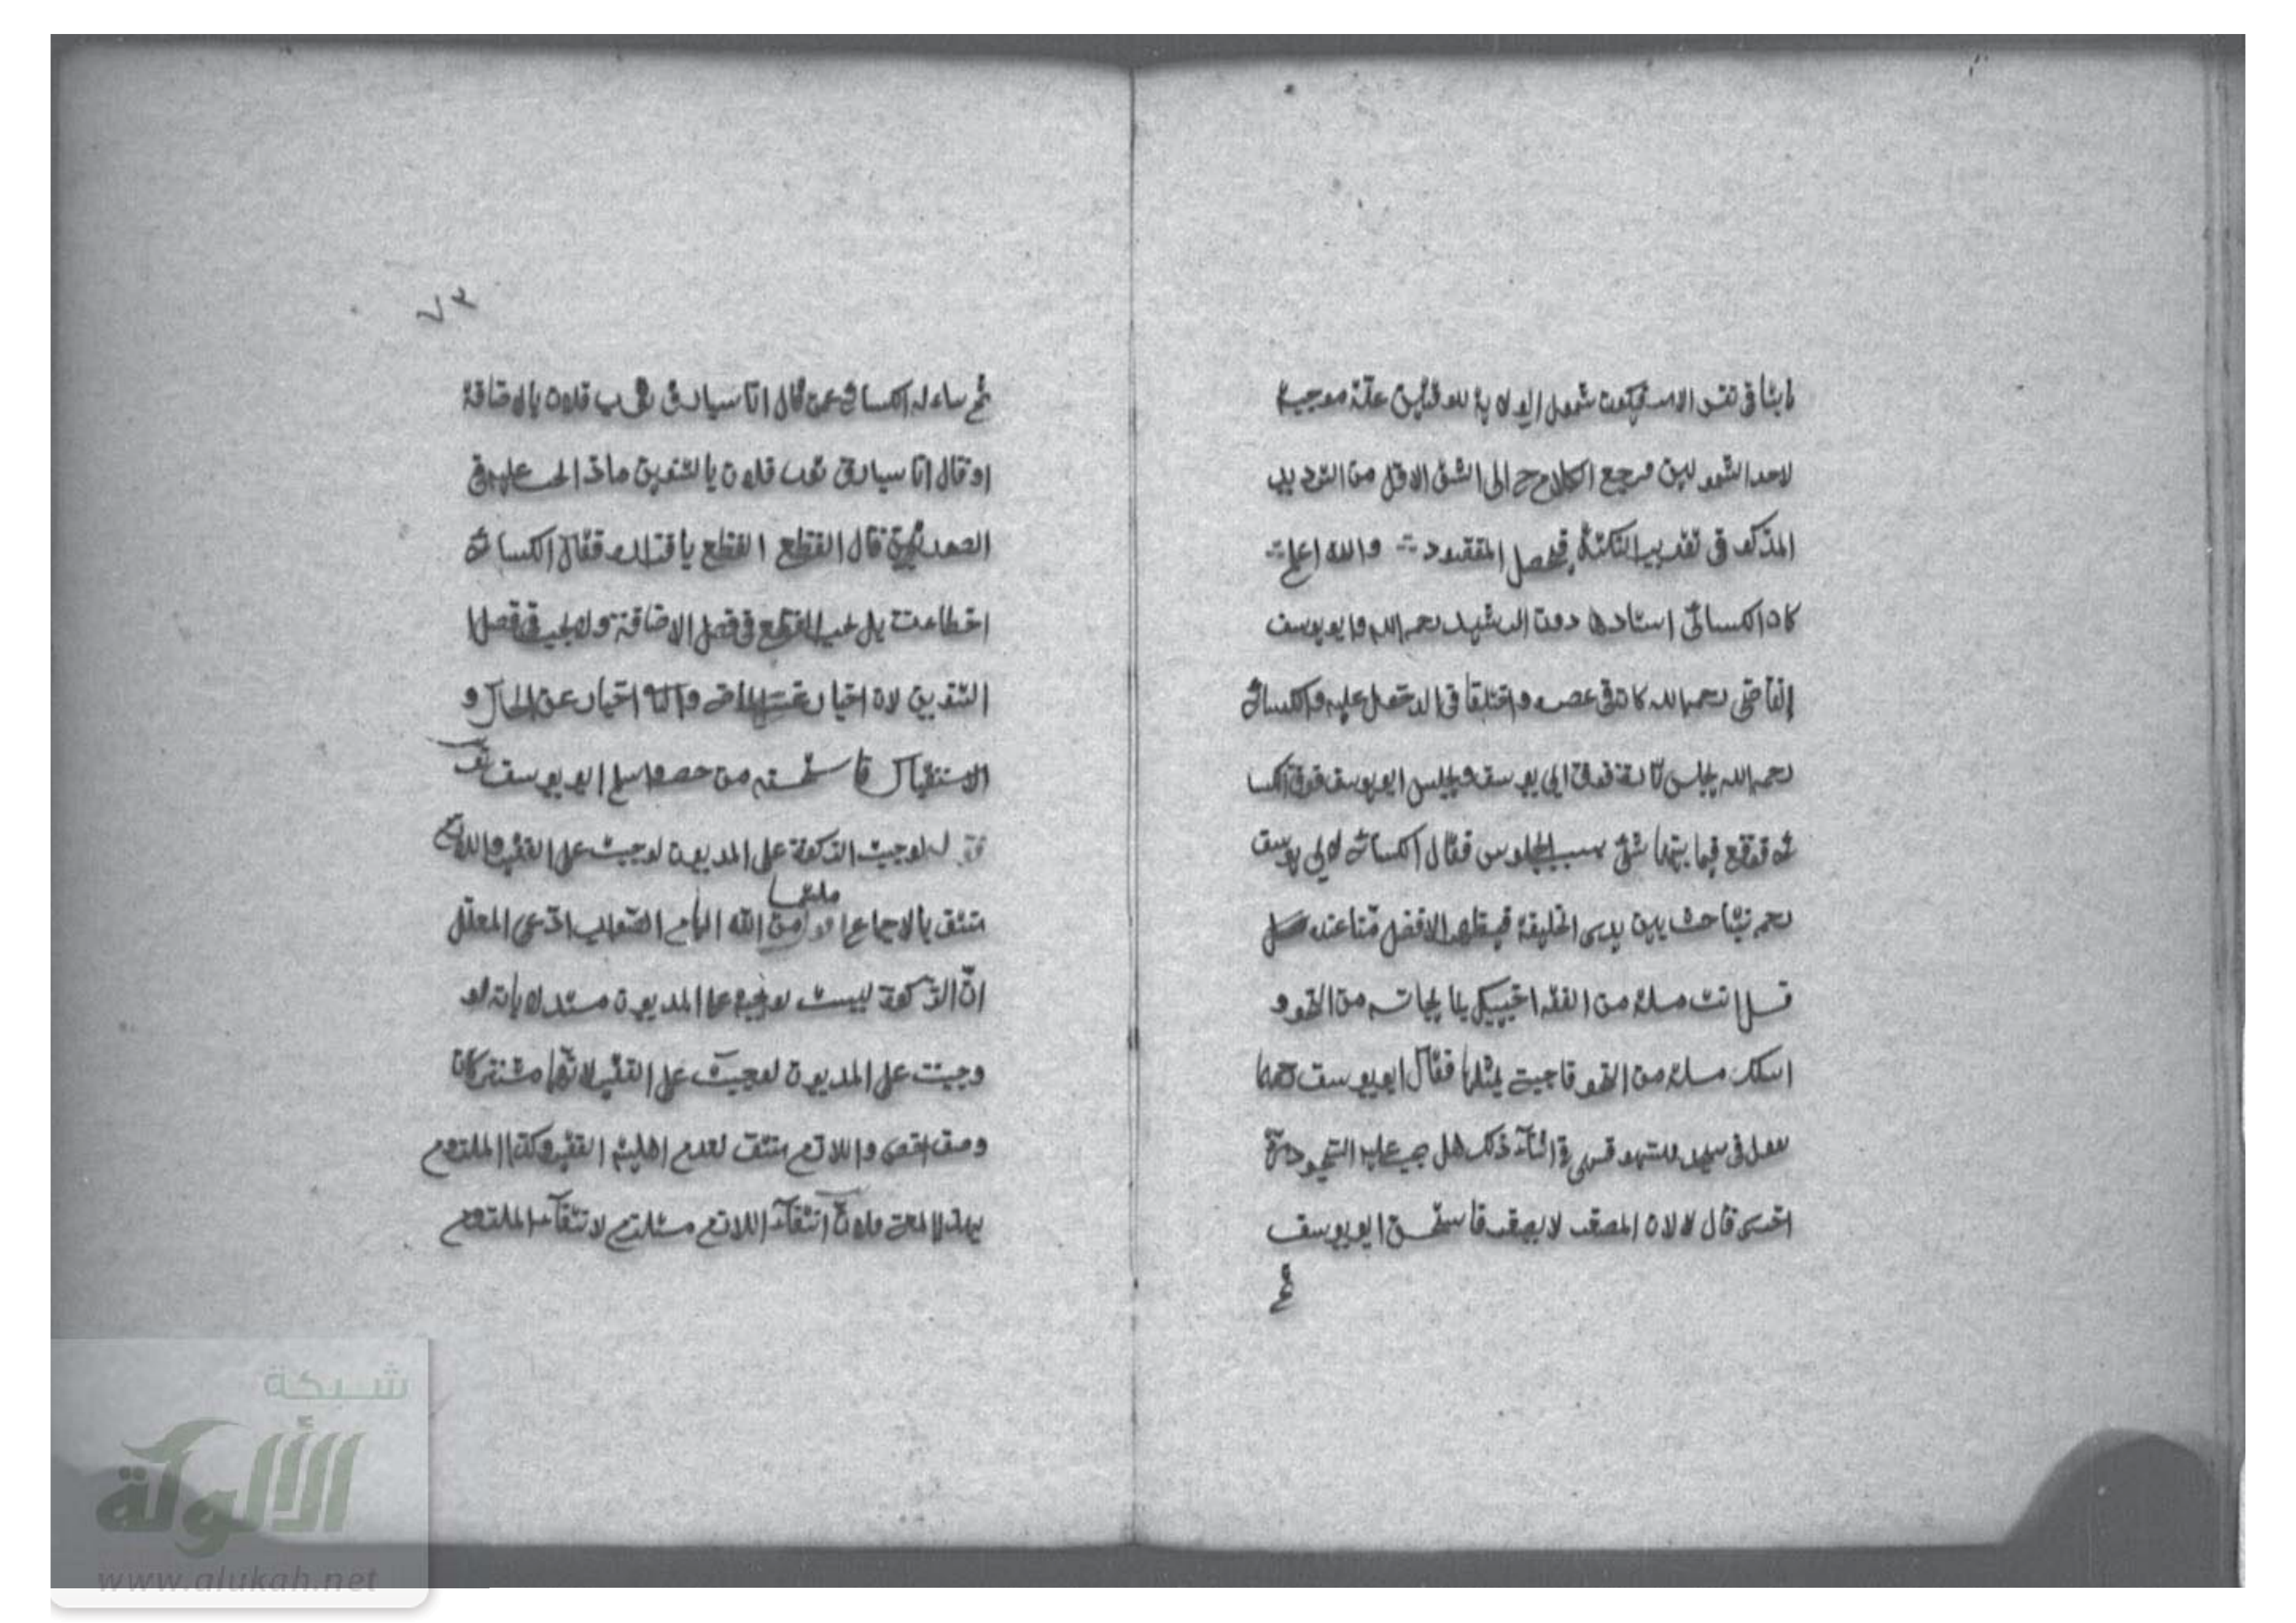 ثابتا في نفس الامر فيكون شمول الولاية للوقتين علة موجبة
لاحد الشمولين فرجع الكلام ح الى الشق الاول من الترديد
المذكور في تقريب النكتة فيحصل المقصود والله اعلم
كان الكسائى استاد هارون الرشيد رحمه الله وابو يوسف
القاضى رحمه الله كان في عصره واختلفا في الدخول عليه والكسائى
رحمه الله يجلس تارة فوق ابى يوسف ويجلس ابو يوسف فوق الكسا
ئى فوقع فيما بينهما شئ بسبب الجلوس فقال الكسائى لابى يوسف
نتباحث بين يدى الخليفة فيظهر الافضل منا عنده
انت مسئلة من الفقه اجيبك بما يجانسه من النحو و
اسئلك مسئلة من النحو فاجب بمثلها فقال ابو يوسف
في سجود السهو فسهى في اثناء ذلك هل يجب عليه السجود مرة
اخرى قال لا لان المصغر لا يصغر فاستحسن ابو يوسف
ثم
٧٣
ثم ساءله الكسائى عمن قال انا سيارق ثوب فلان بالاضافة
او قال انا سيارق ثوب فلان بالتنوين ماذا يجب عليه في
الصورتين قال القطع القطع يا فتى فقال الكسائى
اخطاءت بل يجب القطع في فصل الاضافة ولا يجب في فصل
التنوين لان اخبار عن الماضى وانه اخبار عن الحال و
الاستقبال فاستحسنه من حضر وسلم ابو يوسف
لو وجبت الزكوة على المديون لوجبت على الفقير واللازم
ملخصا
منتف بالاجماع من الله الهام الصواب ادعى المعلل
ان الزكوة ليست بواجبة على المديون مستدلا بانه لو
وجبت على المديون لوجبت على الفقير لانهما مشتركان
واللازم منتف لعدم اهلية الفقير وكذا الملزوم
فلان انتفاء اللازم مستلزم لانتفاء الملزوم
شبكة
الألوكة
www.alukah.net